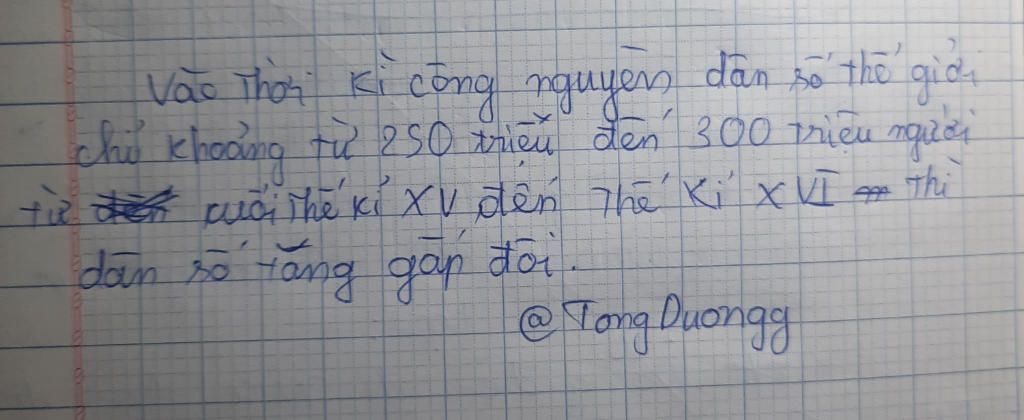 Vào Thời kì công nguyên dân số thế giới
chỉ khoảng từ 250 triệu đến 300 triệu người
từ cuối Thế kỉ XV đến Thế Kỉ XVI thì
dân số tăng gấp đôi.
@TongDuongg